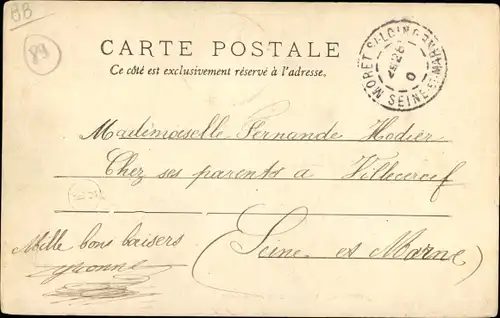 BB
89
CARTE POSTALE
Ce côté est exclusivement réservé à l'adresse.
MORET S/LOING SEINE-ET-MARNE
Mademoiselle Fernande Hodier
Chez ses parents à Villecerf
Mille bons baisers
Yvonne
(Seine et Marne)